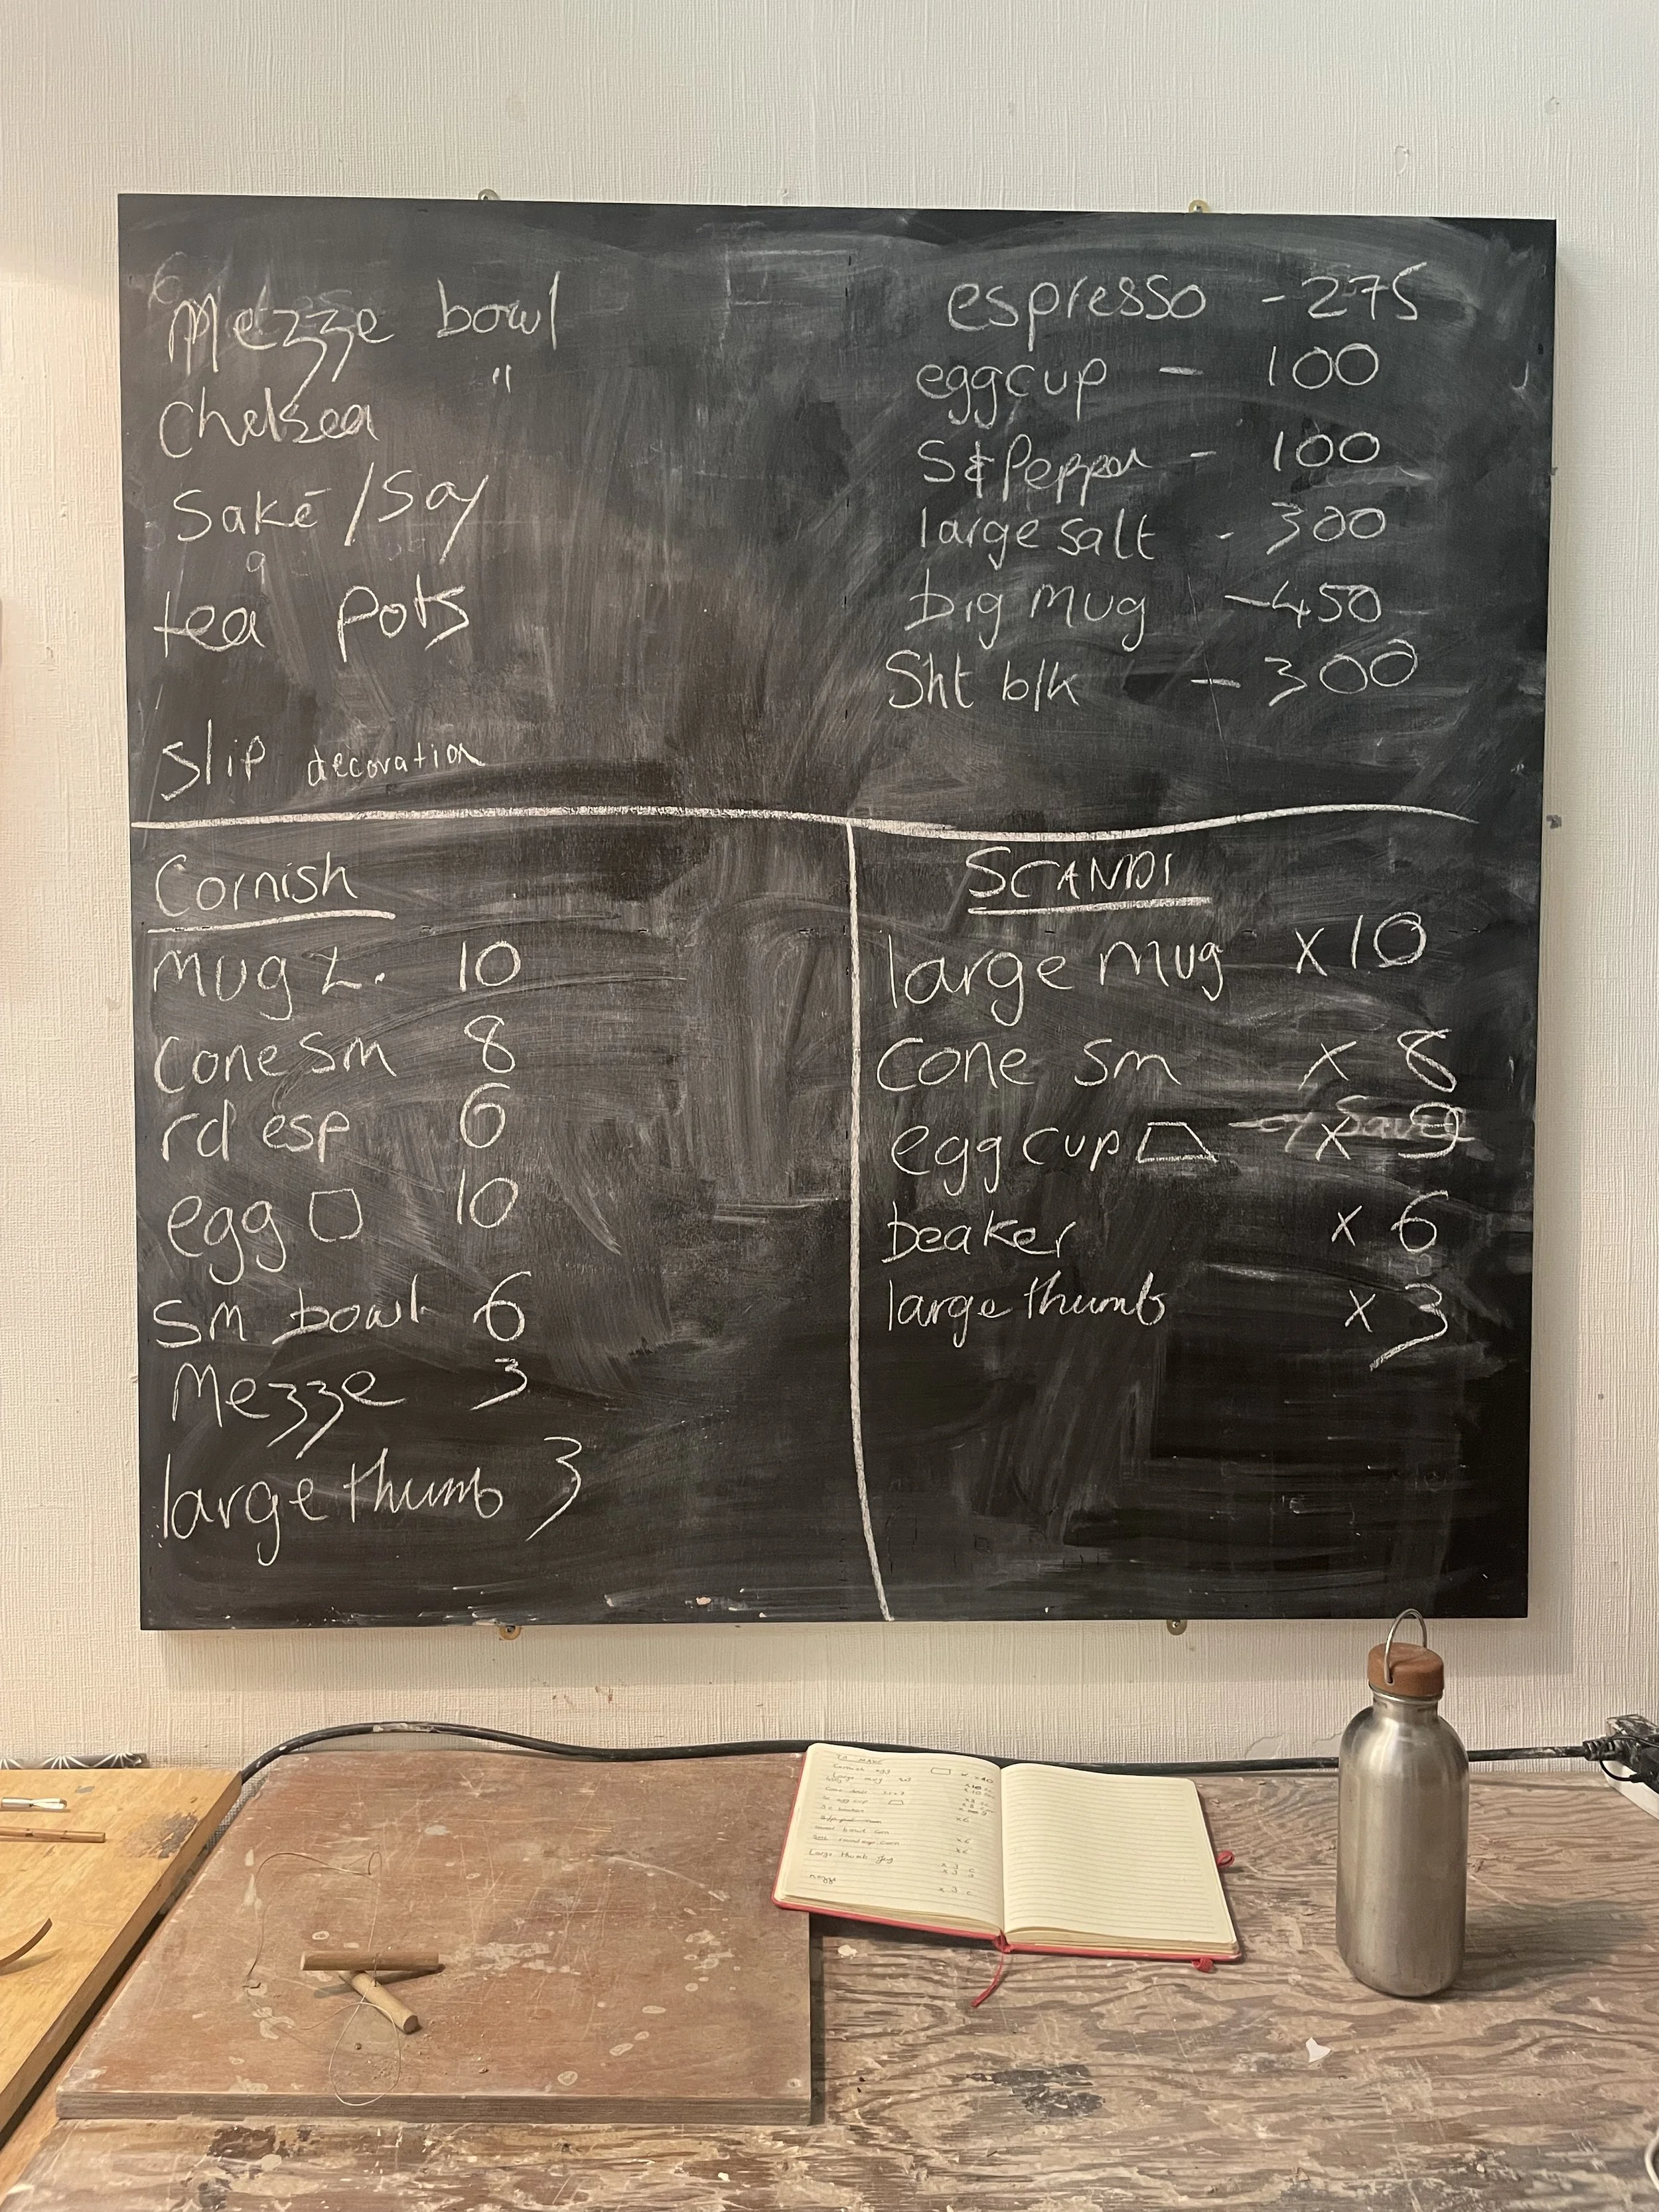 Mezze bowl
"
Chelsea
Saké / Soy
tea pots
Slip decoration
espresso - 275
eggcup - 100
S&Pepper - 100
large salt - 300
big mug - 450
Sht blk - 300
Cornish
mug L. 10
cone sm 8
rd esp 6
egg 10
sm bowl 6
Mezze 3
large thumb 3
SCANDI
large mug x 10
Cone sm x 8
egg cup x
beaker x 6
large thumb x 3
Cornish egg
Large mug
beaker
Large thumb
x 3 c